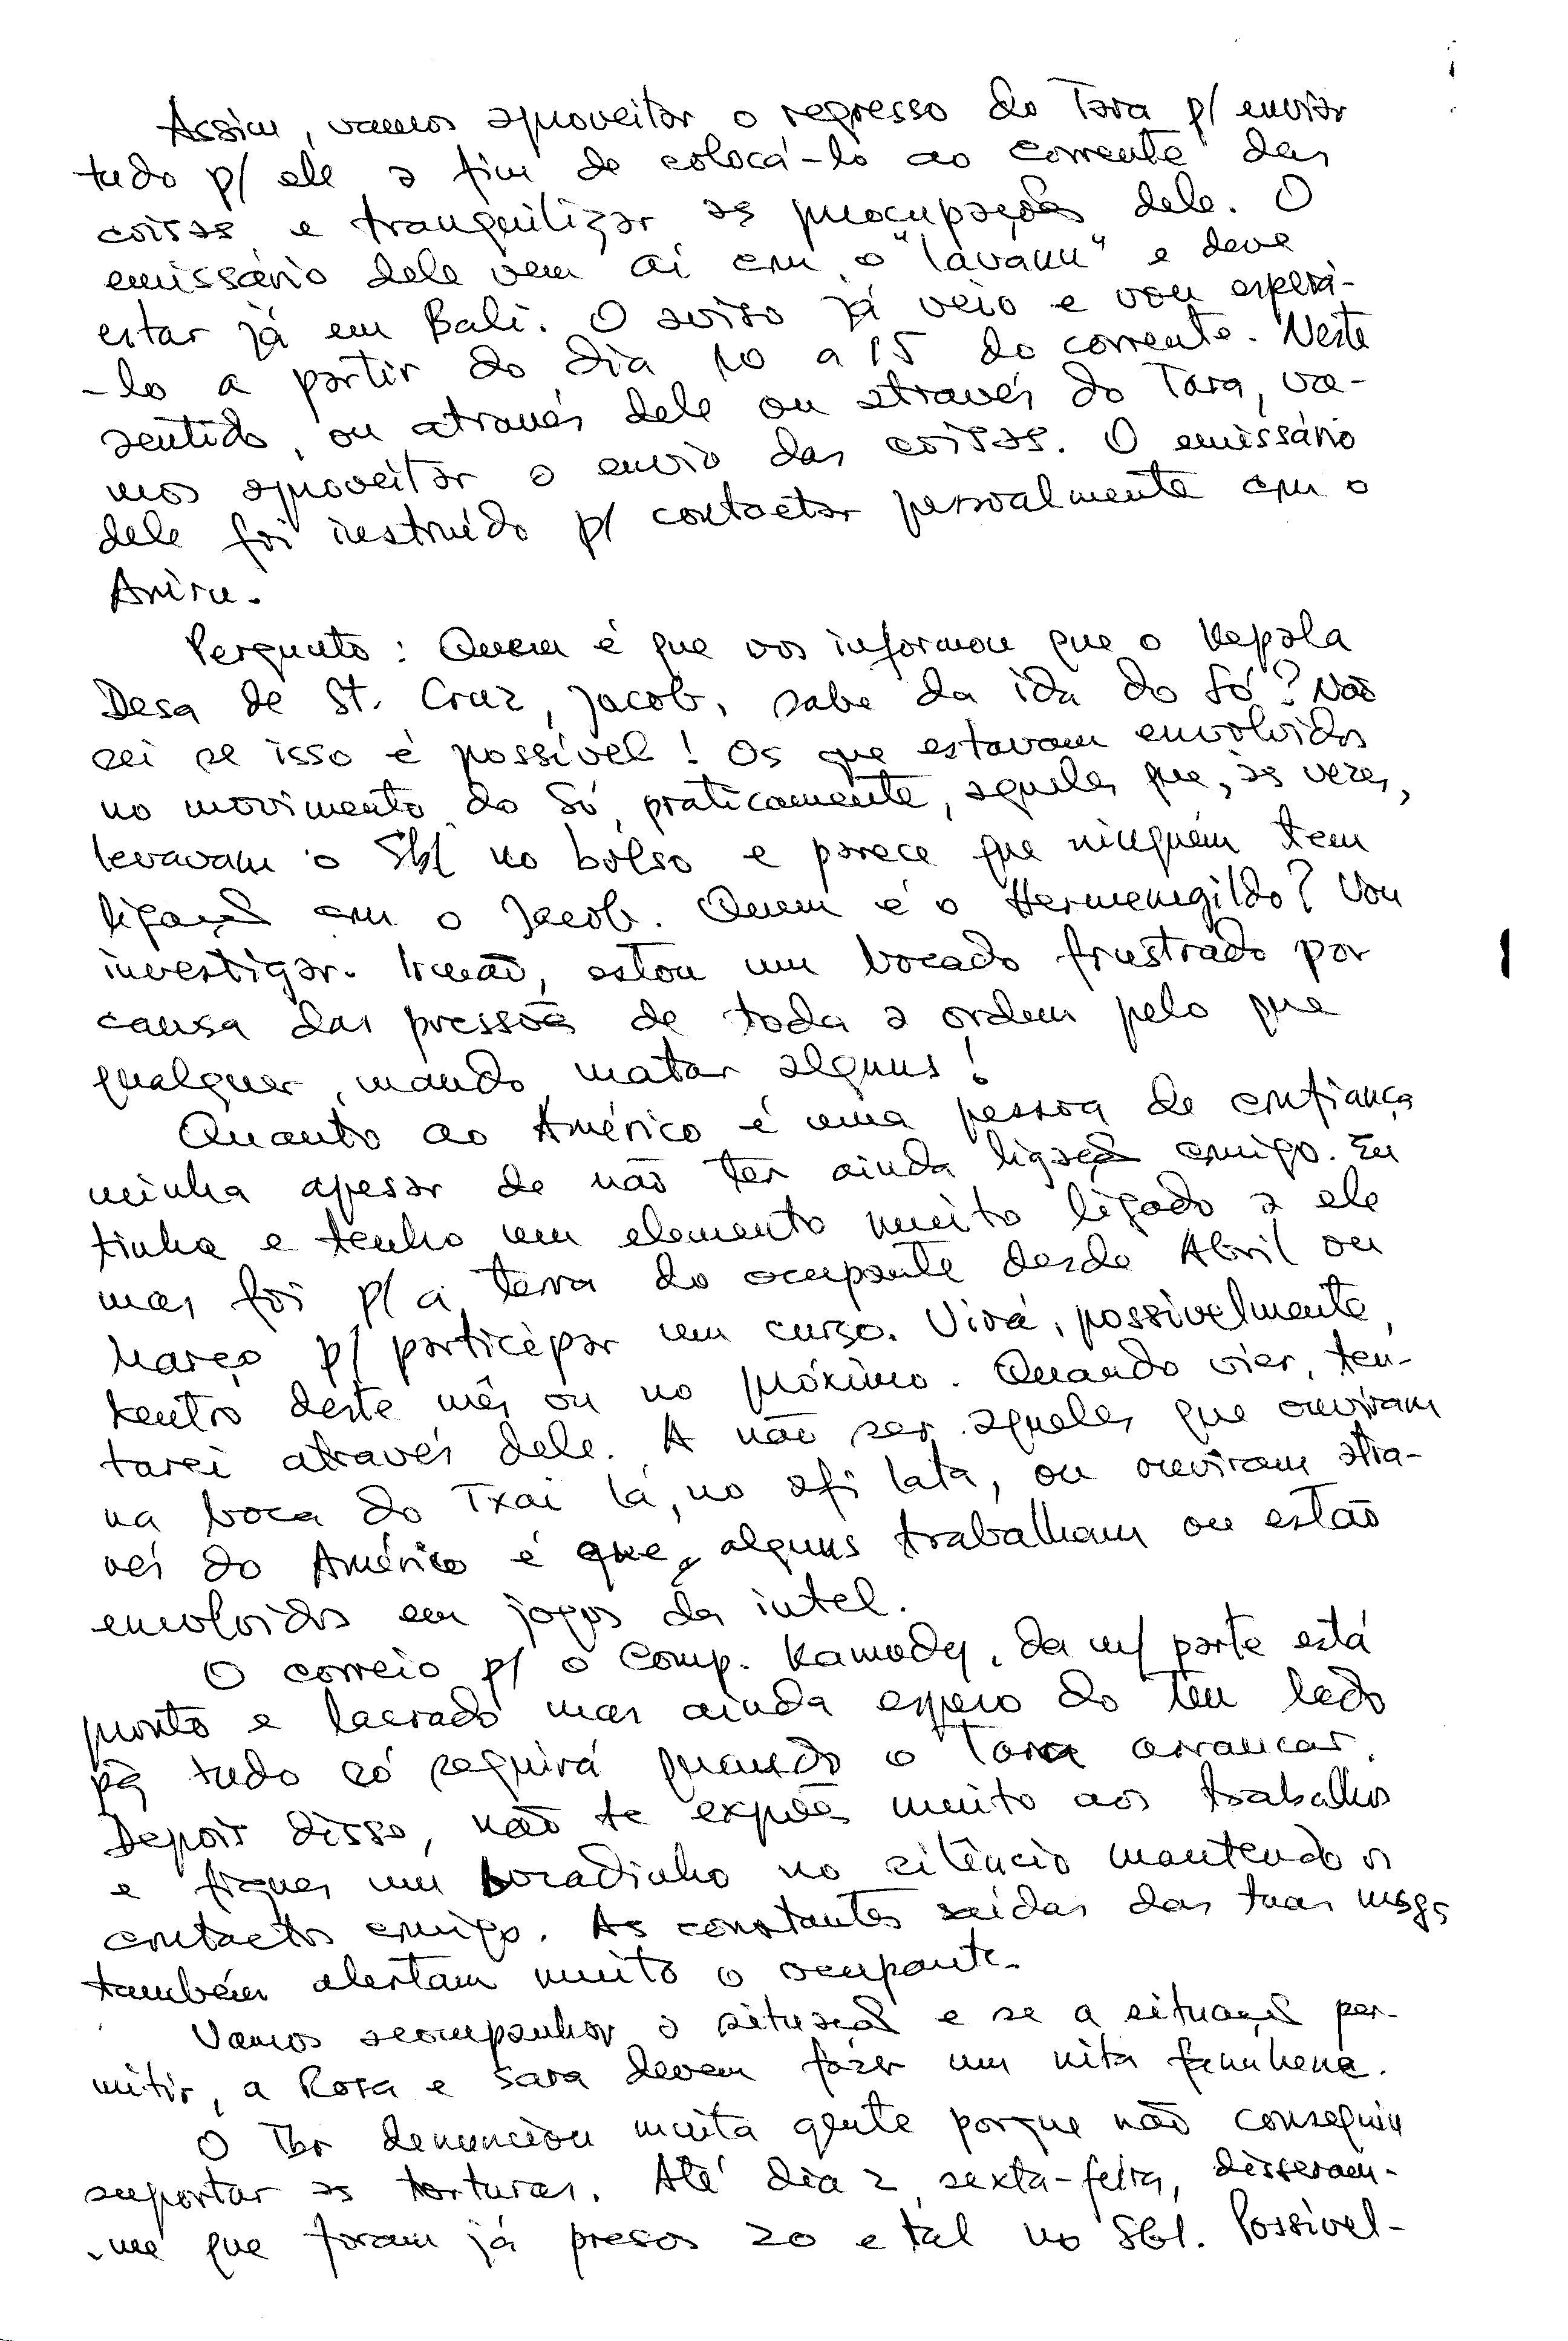 Assim, vamos aproveitar o regresso do Tara p/ enviar
tudo p/ ele a fim de colocá-lo ao corrente das
coisas e tranquilizar as preocupações dele. O
emissário dele vem aí com o "lavanu" e deve
estar já em Bali. O aviso já veio e vou esperá-
-lo a partir do dia 10 a 15 do corrente. Neste
sentido, ou através dele ou através do Tara, va-
mos aproveitar o envio das coisas. O emissário
dele foi instruído p/ contactar pessoalmente com o
Pergunto: Quem é que vos informou que o Kepala
Desa de St. Cruz, Jacob, sabe da ida do Só? Não
sei se isso é possível! Os que estavam envolvidos
no movimento do Só, praticamente, aqueles que, às vezes,
levavam o Sbl no bolso e parece que ninguém tem
ligação com o Jacob. Quem é o Hermenegildo? Vou
investigar. Irmão, estou um bocado frustrado por
causa das pressões de toda a ordem pelo que
qualquer, mando matar alguns!
Quanto ao Américo é uma pessoa de confiança
minha apesar de não ter ainda ligação comigo. Eu
tinha e tenho um elemento muito ligado a ele
mas foi p/ a terra do ocupante desde Abril ou
Março p/ participar um curso. Virá, possivelmente,
dentro deste mês ou no próximo. Quando vier, ten-
tarei através dele. A não ser aqueles que ouviram
na boca do Txai lá, no afi lata, ou ouviram atra-
vés do Américo é que, alguns trabalham ou estão
envolvidos em jogos da intel.
O correio p/ o Comp. Kamody, da m/ parte está
pronto e lacrado mas ainda espero do teu lado
pq tudo só seguirá quando o Tara arrancar.
Depois disso, não te expões muito aos trabalhos
e fiques um bocadinho no silêncio mantendo os
contactos comigo. As constantes saídas das tuas msgs
também alertam muito o ocupante.
Vamos acompanhar a situação e se a situação per-
mitir, a Rosa e Sara devem fazer um nita
O Tbr denunciou muita gente porque não conseguiu
suportar as torturas. Até dia 2, sexta-feira, disseram-
-me que foram já presos 20 e tal no Sbl. Possivel-